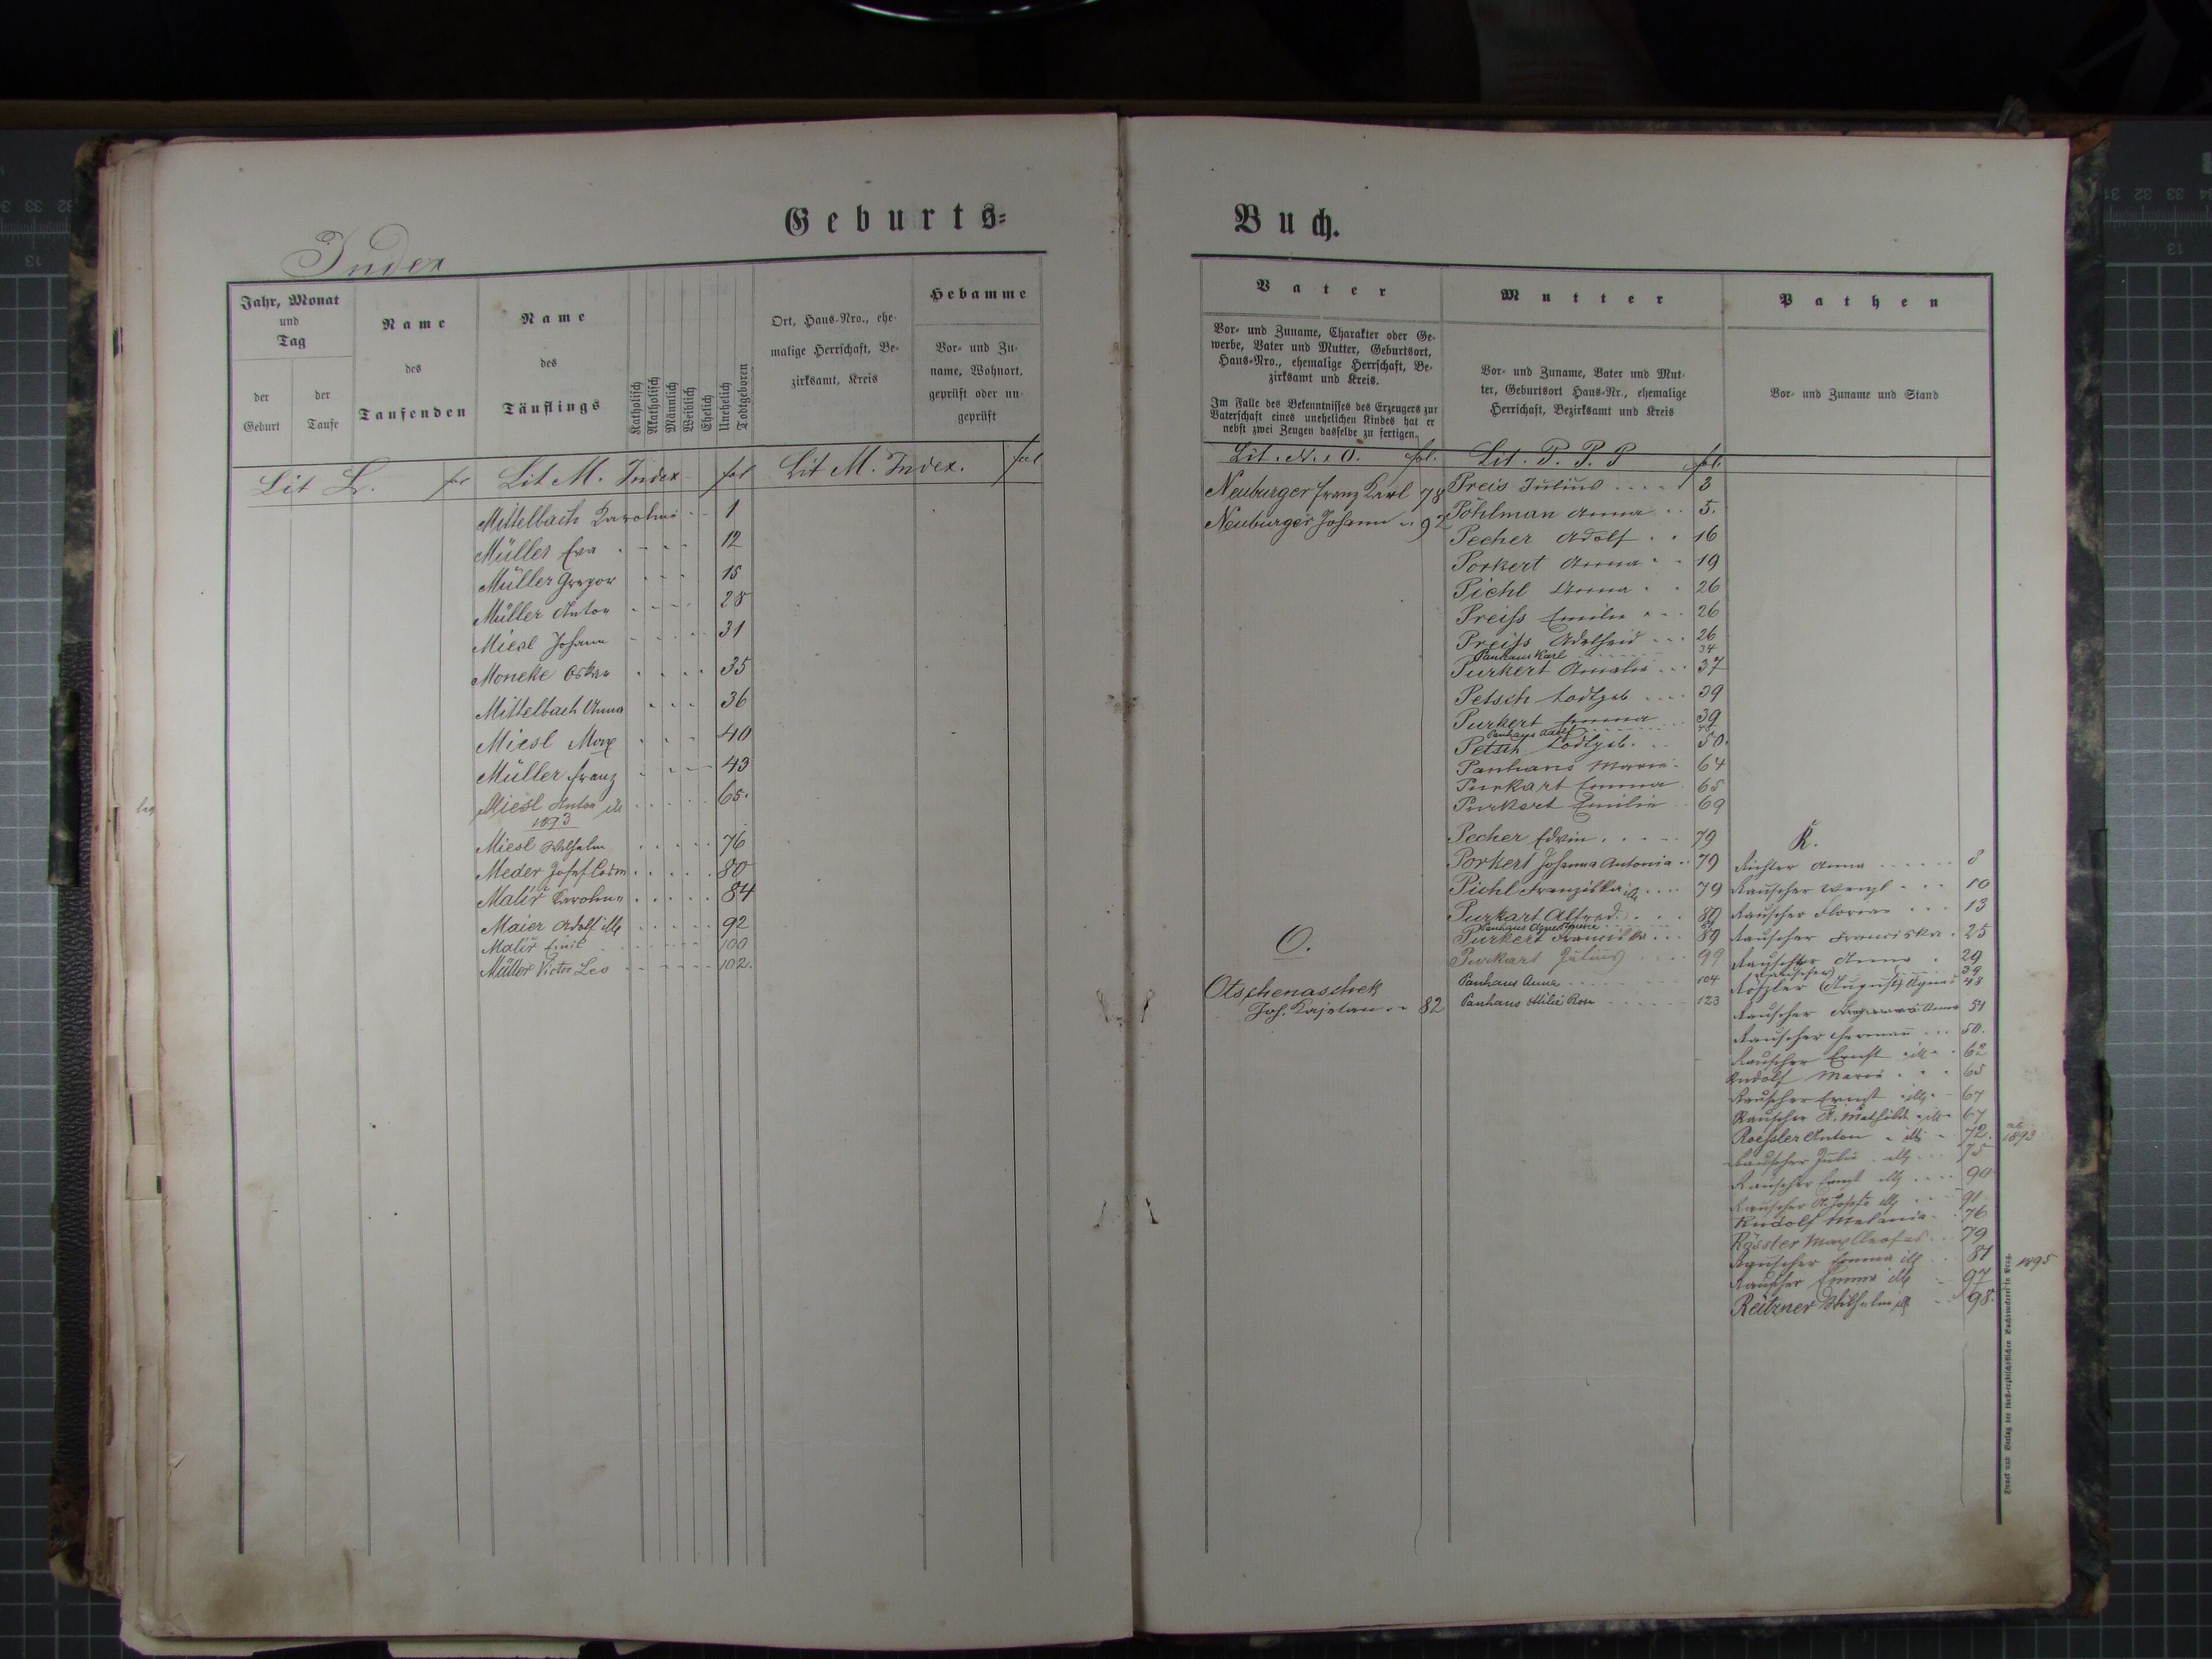 Geburts=
Index
Jahr, Monat
und
Tag
der
Geburt
der
Taufe
Name
des
Taufenden
Name
des
Täuflings
Katholisch
Akatholisch
Männlich
Weiblich
Ehelich
Unehelich
Todtgeboren
Ort, Haus-Nro., ehe-
malige Herrschaft, Be-
zirksamt, Kreis
Hebamme
Vor- und Zu-
name, Wohnort,
geprüft oder un-
geprüft
Lit L. Lit M. Index fol Lit M. Index. fol
Mittelbach Karolina 1
Müller Eva 12
Müller Gregor 15
Müller Anton 28
Miesl Johann 31
Moneke Oskar 35
Mittelbach Anna 36
Miesl Max 40
Müller Franz 43
Miesl Anton ill 65.
1893
Miesl Wilhelm 76
Meder Josef 80
Malíř Karolina 84
Maier Adolf ill 92
Malíř Emil 100
Müller Victor Leo 102.
Buch.
Vater
Vor- und Zuname, Charakter oder Ge-
werbe, Vater und Mutter, Geburtsort,
Haus-Nro., ehemalige Herrschaft, Be-
zirksamt und Kreis.
Im Falle des Bekenntnisses des Erzeugers zur
Vaterschaft eines unehelichen Kindes hat er
nebst zwei Zeugen dasselbe zu fertigen.
Mutter
Vor- und Zuname, Vater und Mut-
ter, Geburtsort Haus-Nr., ehemalige
Herrschaft, Bezirksamt und Kreis
Pathen
Vor- und Zuname und Stand
Lit. N. O. fol.
Neuburger Franz Karl 78
Neuburger Johann 92
O.
Otschenaschek
Joh. Kajetan 82
Lit. P. P. P fol.
Preis Julius 3
Pöhlman Anna 5.
Pecher Adolf 16
Porkert Anna 19
Pichl Anna 26
Preiss Emilie 26
Preiss Adelheid 26
Panhaus Karl 34
Purkert Amalia 37
Petsch todtgeb 39
Purkert Emma 39
Panhaus Adolf
Petsch todtgeb. 50.
Panhans Marie 64
Purkart Emma 65
Purkert Emilie 69
Pecher Edwin 79
Porkert Johanna Antonia 79
Pichl Franziska ill 79
Purkart Alfred
Panhaus Agnes
Purkert Franziska 89
Purkart Julius 99
Panhaus Anna 104
Panhaus Otilie Rosa 123
R.
Richter Anna 8
Rauscher Wenzl 10
Rauscher Florian 13
Rauscher Franciska 25
Rauscher Anna 29
Rauscher Anna 51
Rauscher Herman 50.
Rauscher Ernst ill 62
Rudolf Marie 65
Rauscher Ernst ill 67
Rauscher A. Mathilde ill 67
Roessler Anton ill 72. 1893
Rauscher Julie ill 75
Rauscher Ernst ill 90
Rauscher A. Josefa ill 91
Rudolf Melanie 76
Rössler Max Cleofas 79
Rauscher Emma ill 81 1895
Rauscher Emma ill 97
Reitzner Wilhelm ill 98.